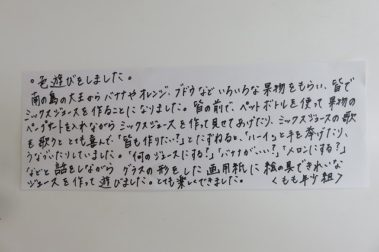 。色遊びをしました。
南の島の大王からバナナやオレンジ、ブドウなどいろいろな果物をもらい、皆で
ミックスジュースを作ることになりました。皆の前で、ペットボトルを使って果物の
ペープサートを入れながらミックスジュースを作って見せてあげたり、ミックスジュースの歌
を歌うととても喜んで「皆も作りたい？」とたずねると、「ハーイ」と手を挙げたり、
うなづいたりしていました。「何のジュースにする？」「バナナがいい？」「メロンにする？」
などと話をしながらグラスの形をした画用紙に絵の具できれいな
ジュースを作って遊びました。とても楽しくできました。〈もも年少組〉